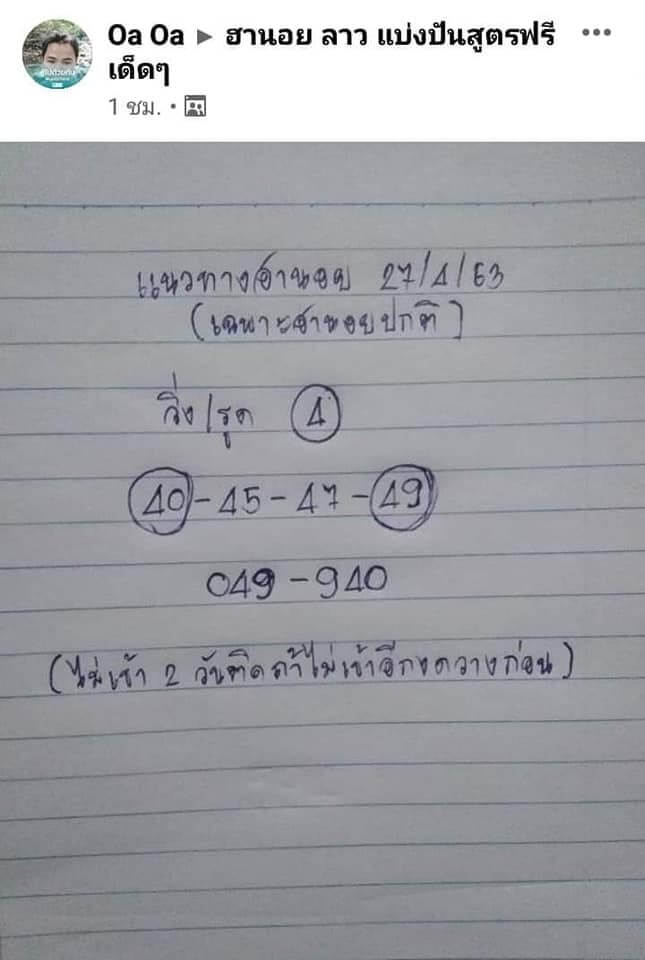 Oa Oa ▸ ฮานอย ลาว แบ่งปันสูตรฟรี
เด็ดๆ
1 ชม.
แนวทางฮานอย 27/4/63
(เฉพาะฮานอยปกติ)
วิ่ง/รูด 4
40-45-47-49
049-940
(ไม่เข้า 2 วันติดถ้าไม่เข้าอีกงดวางก่อน)